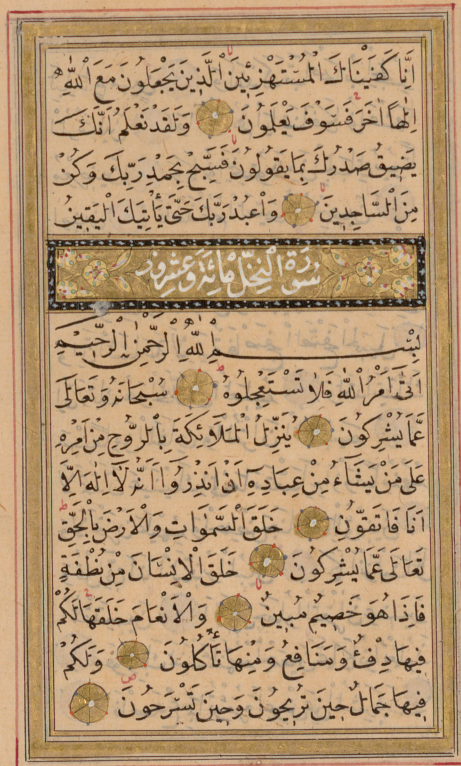 اِنَّا كَفَيْنَاكَ الْمُسْتَهْزِئِينَ الَّذِينَ يَجْعَلُونَ مَعَ اللّٰهِ
اِلٰهًا اٰخَرَ فَسَوْفَ يَعْلَمُونَ وَلَقَدْ نَعْلَمُ اَنَّكَ
يَضِيقُ صَدْرُكَ بِمَا يَقُولُونَ فَسَبِّحْ بِحَمْدِ رَبِّكَ وَكُنْ
مِنَ السَّاجِدِينَ وَاعْبُدْ رَبَّكَ حَتّٰى يَأْتِيَكَ الْيَقِينُ
سُورَةُ النَّحْلِ مِائَة وَعِشْرُونَ
بِسْمِ اللّٰهِ الرَّحْمٰنِ الرَّحِيمِ
اَتٰى اَمْرُ اللّٰهِ فَلَا تَسْتَعْجِلُوهُ سُبْحَانَهُ وَتَعَالٰى
عَمَّا يُشْرِكُونَ يُنَزِّلُ الْمَلَائِكَةَ بِالرُّوحِ مِنْ اَمْرِهِ
عَلٰى مَنْ يَشَاءُ مِنْ عِبَادِهِ اَنْ اَنْذِرُوا اَنَّهُ لَا اِلٰهَ اِلَّا
اَنَا فَاتَّقُونِ خَلَقَ السَّمٰوَاتِ وَالْاَرْضَ بِالْحَقِّ
تَعَالٰى عَمَّا يُشْرِكُونَ خَلَقَ الْاِنْسَانَ مِنْ نُطْفَةٍ
فَاِذَا هُوَ خَصِيمٌ مُبِينٌ وَالْاَنْعَامَ خَلَقَهَا لَكُمْ
فِيهَا دِفْءٌ وَمَنَافِعُ وَمِنْهَا تَأْكُلُونَ وَلَكُمْ
فِيهَا جَمَالٌ حِينَ تُرِيحُونَ وَحِينَ تَسْرَحُونَ